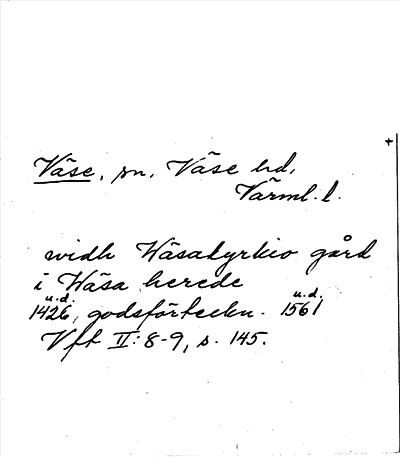 Väse, sn, Väse hd,
Värml. l.
widh Wäsakyrkio gård
i Wäsa herede
u.d. u.d.
1426, godsförteckn. 1561
Vft II: 8-9, s. 145.